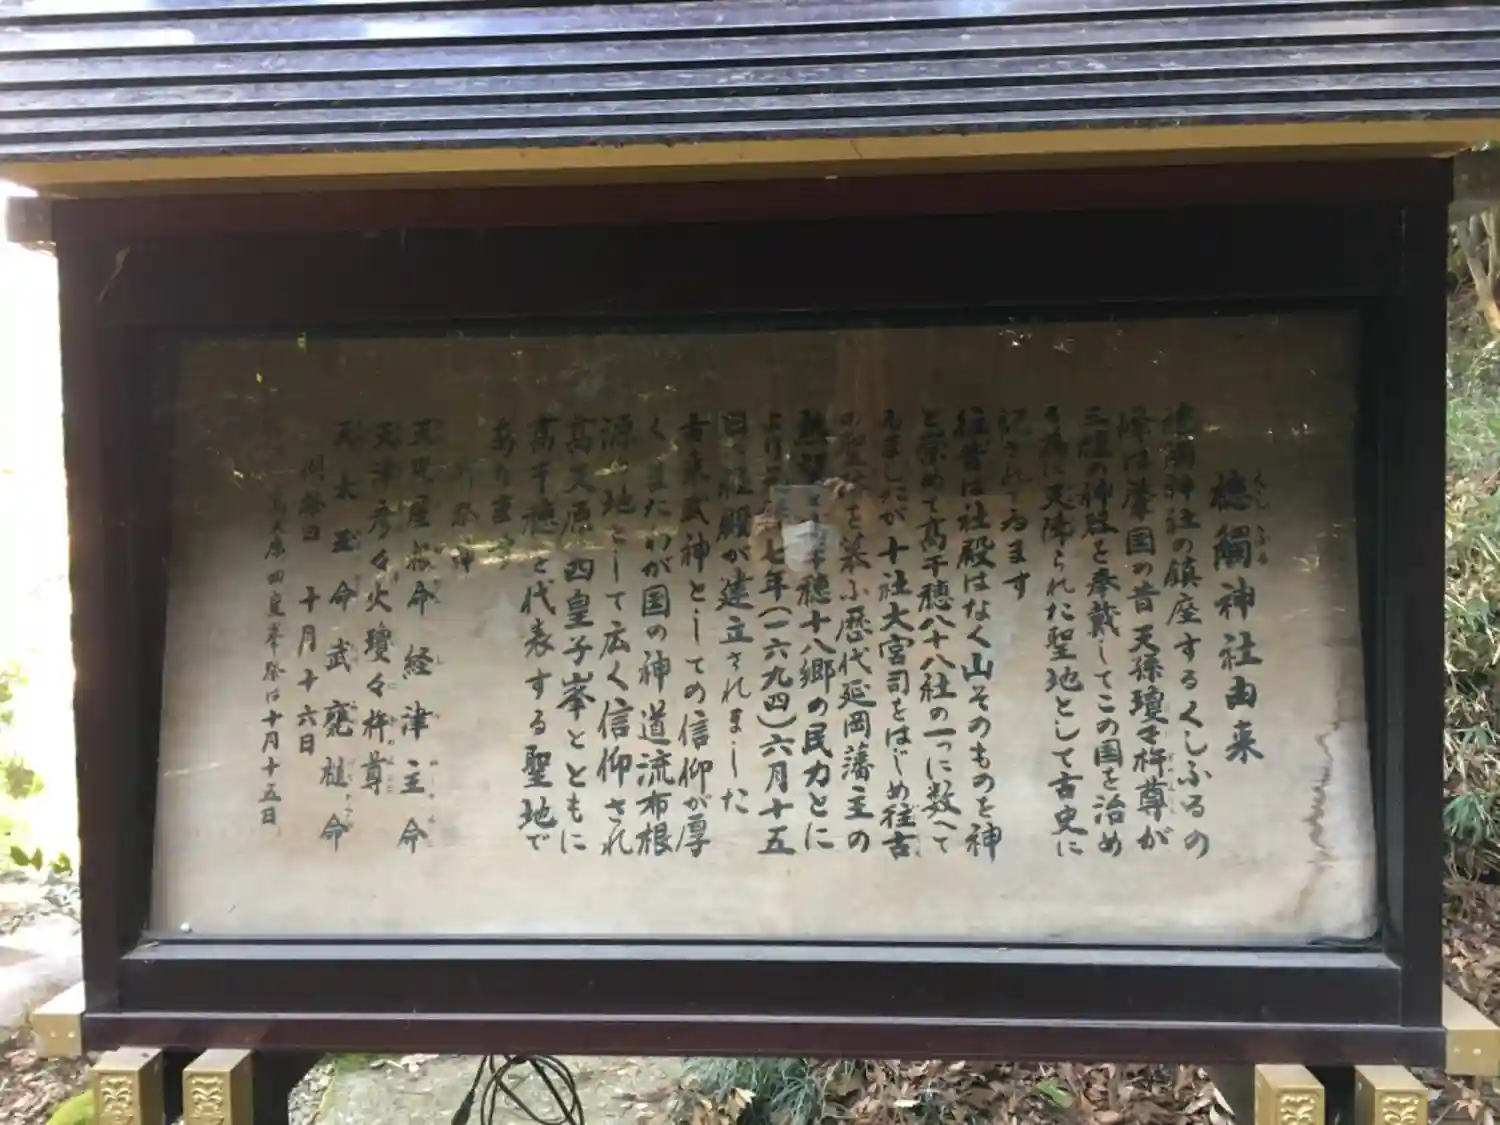 槵觸神社由来
槵觸神社の鎮座するくしふるの
峰は肇国の昔天孫瓊々杵尊が
三種の神器を奉戴してこの国を治め
る為に天降られた聖地として古史に
記されてゐます
往昔は社殿はなく山そのものを神
と崇めて高千穂八十八社の一つに数へて
ゐましたが十社大宮司をはじめ往古
の聖跡を慕ふ歴代延岡藩主の
熱望と高千穂十八郷の民力とに
より元禄七年(一六九四)六月十五
日社殿が建立されました
古来武神としての信仰が厚
くまたわが国の神道流布根
源の地として広く信仰され
高天原四皇子峯とともに
高千穂を代表する聖地で
あります
御祭神
天児屋根命 経津主命
天津彦々火瓊々杵尊
天太玉命 武甕槌命
例祭日 十月十六日
高天原四皇子峯祭は十月十五日